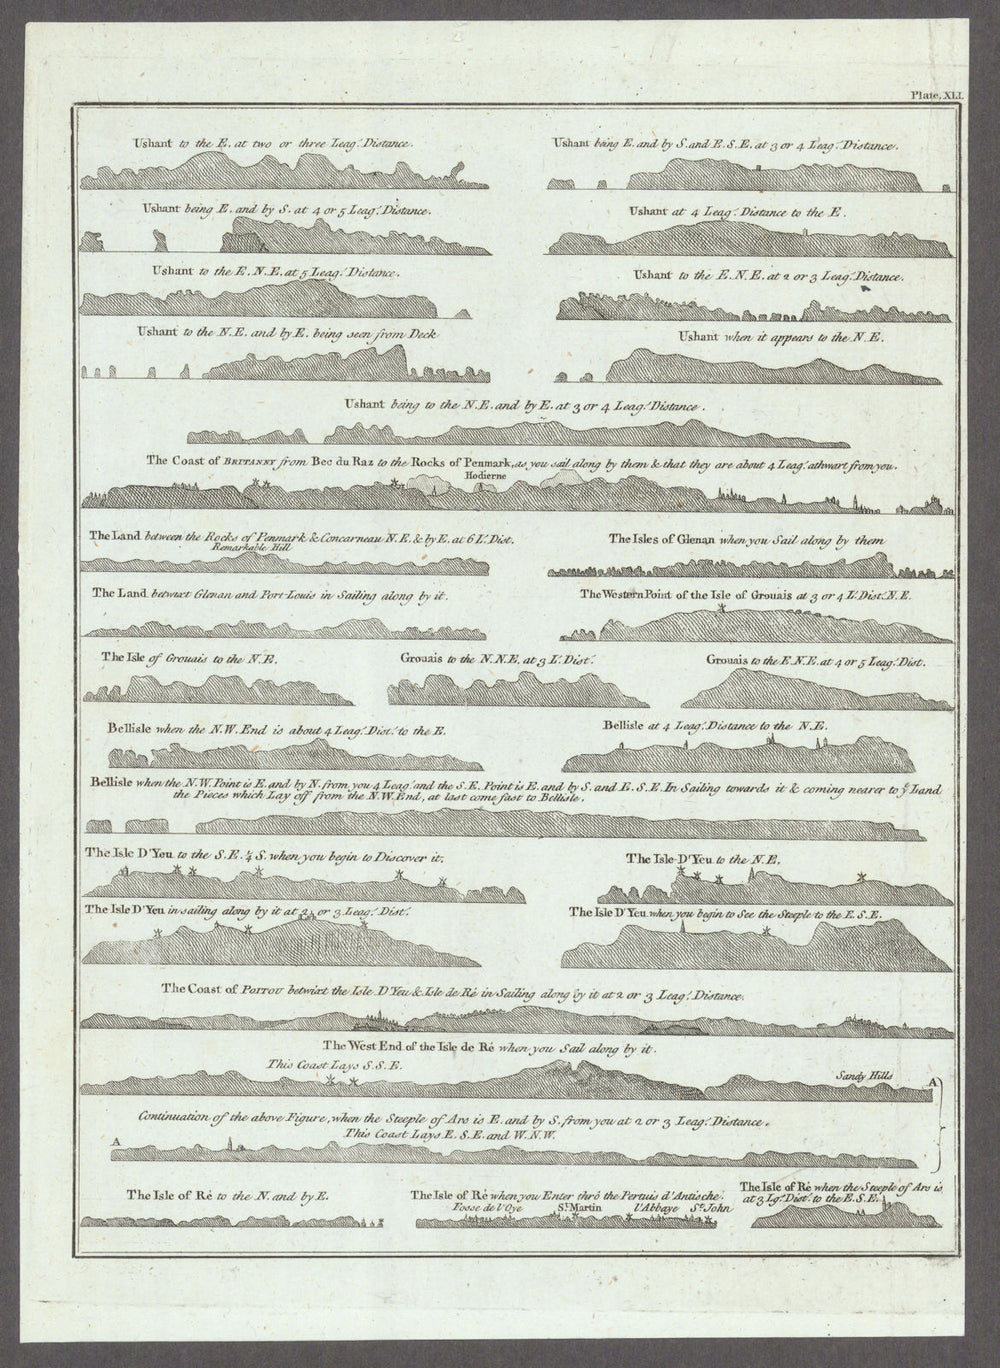 Plate, XLI.
Ushant to the E. at two or three Leag.s Distance.
Ushant being E. and by S. and E. S. E. at 3 or 4 Leag.s Distance.
Ushant being E. and by S. at 4 or 5 Leag.s Distance.
Ushant at 4 Leag.s Distance to the E.
Ushant to the E. N. E. at 5 Leag.s Distance.
Ushant to the E. N. E. at 2 or 3 Leag.s Distance.
Ushant to the N. E. and by E. being seen from Deck
Ushant when it appears to the N. E.
Ushant being to the N. E. and by E. at 3 or 4 Leag.s Distance.
The Coast of BRITANNY from Bec du Raz to the Rocks of Penmark, as you sail along by them & that they are about 4 Leag.s athwart from you.
Hodierne
The Land between the Rocks of Penmark & Concarneau N. E. & by E. at 6 L.s Dist.
Remarkable Hill
The Isles of Glenan when you Sail along by them
The Land betwixt Glenan and Port-Louis in Sailing along by it.
The Western Point of the Isle of Grouais at 3 or 4 L.s Dist. N. E.
The Isle of Grouais to the N. E.
Grouais to the N. N. E. at 3 L.s Dist.
Grouais to the E. N. E. at 4 or 5 Leag.s Dist.
Bellisle when the N. W. End is about 4 Leag.s Dist. to the E.
Bellisle at 4 Leag.s Distance to the N. E.
Bellisle when the N. W. Point is E. and by N. from you 4 Leag.s and the S. E. Point is E. and by S. and E. S. E. In Sailing towards it & coming nearer to ye Land
the Pieces which Lay off from the N. W. End, at last come fast to Bellisle.
The Isle D'Yeu to the S. E. ¼ S. when you begin to Discover it.
The Isle D'Yeu to the N. E.
The Isle D'Yeu in sailing along by it at 2 or 3 Leag.s Dist.
The Isle D'Yeu when you begin to See the Steeple to the E. S. E.
The Coast of POITOU betwixt the Isle D'Yeu & Isle de Ré in Sailing along by it at 2 or 3 Leag.s Distance.
The West End of the Isle de Ré when you Sail along by it.
This Coast Lays S. S. E.
Sandy Hills
A
Continuation of the above Figure, when the Steeple of Ars is E. and by S. from you at 2 or 3 Leag.s Distance.
This Coast Lays E. S. E. and W. N. W.
A
The Isle of Ré to the N. and by E.
The Isle of Ré when you Enter thrô the Pertuis d'Antioche.
Fosse de l'Oye St. Martin l'Abbaye St. John
The Isle of Ré when the Steeple of Ars is
at 3 Lg.s Dist. to the E. S. E.